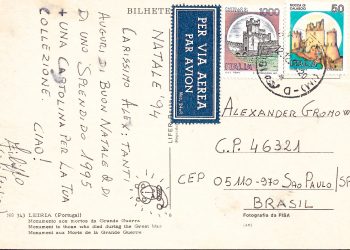 BILHETE
NATALE '94
CARISSIMO ALEX, TANTI
AUGURI DI BUON NATALE E DI
DI UNO SPLENDIDO 1995
+ UNA CARTOLINA PER LA TUA
COLLEZIONE.
CIAO!
LEIRIA (Portugal)
Monumento aos mortos da Grande Guerra
Monument to those who died during the Great War
Monument aux Morts de la Grande Guerre
PER VIA AEREA
PAR AVION
1000
ITALIA
50
ROCCA DI
CALASCIO
ALEXANDER GROMOW
C.P. 46321
CEP 05110-970 SÃO PAULO/SP
BRASIL
Fotografia da FISA